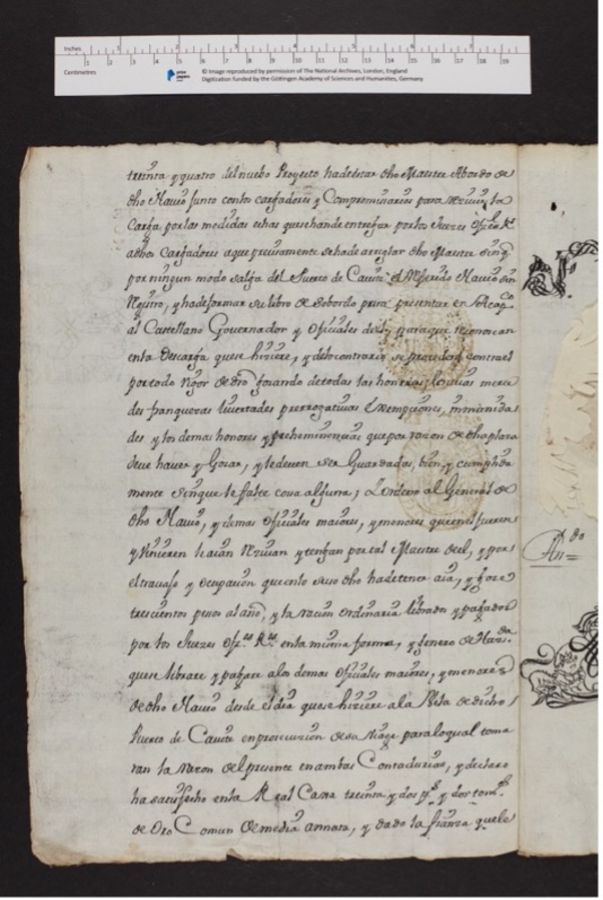 Inches
1 2 3 4 5 6 7
1 2 3 4 5 6 7 8 9 10 11 12 13 14 15 16 17 18 19
Centimetres
prize papers
© Image reproduced by permission of The National Archives, London, England
Digitization funded by the Göttingen Academy of Sciences and Humanities, Germany
treinta y quatro del nuebo Proyecto hadeestar dho Maestre Abordo de
dho Navio Junto conlos cargadores y Compromisarios para reziuir la
Carga por las medidas echas quesehande entregar por los Juezes Ofiz.s R.s
adhos Cargadores aque precisamente sehade arreglar dho Maestre sinq
por ningun modo salga del Puerto de Cauite el Referido Navio sin
Registro, y hadeformar su libro de Sobordo para presentar en Acap.co
al Castellano Governador y Oficiales de para que reconoscan
enla Descarga quese hiziere, y delocontrario se procedera contra el
portodo rigor de dro, gosando detodas las honrras, gracias merce
des franquezas livertades prerrogativas Exempciones, inmunida
des y los demas honores y preheminencias quepor razon de dha plaza
deve haver y Gozar, y ledeven ser Guardadas, bien, y cumplida
mente sinque le falte cosa alguna; Y ordeno al General de
dho Navio, y demas Oficiales maiores, y menores queenel fueren
y vinieren le aian Reziuan y tengan por tal Maestre deel, y por
el travajo y ocupacion queenlo suso dho hadetener aia, y goze
trescientos pesos al año, y la racion ordinaria librados y pagados
por los Juezes Ofiz.s R.s enla misma forma, y genero de
que librare y pagare alos demas Oficiales maiores, y menores
de dho Navio desde el dia quese hiziere ala Vela de dicho
Puerto de Cauite en prosecucion desu viage paraloqual toma
ran la razon del presente en ambas Contadurias, y declaro
ha satisfecho enla Real Caxa treinta y dos p.s y dos tom.s
de Oro Comun de media annata, y dado la fianza quele